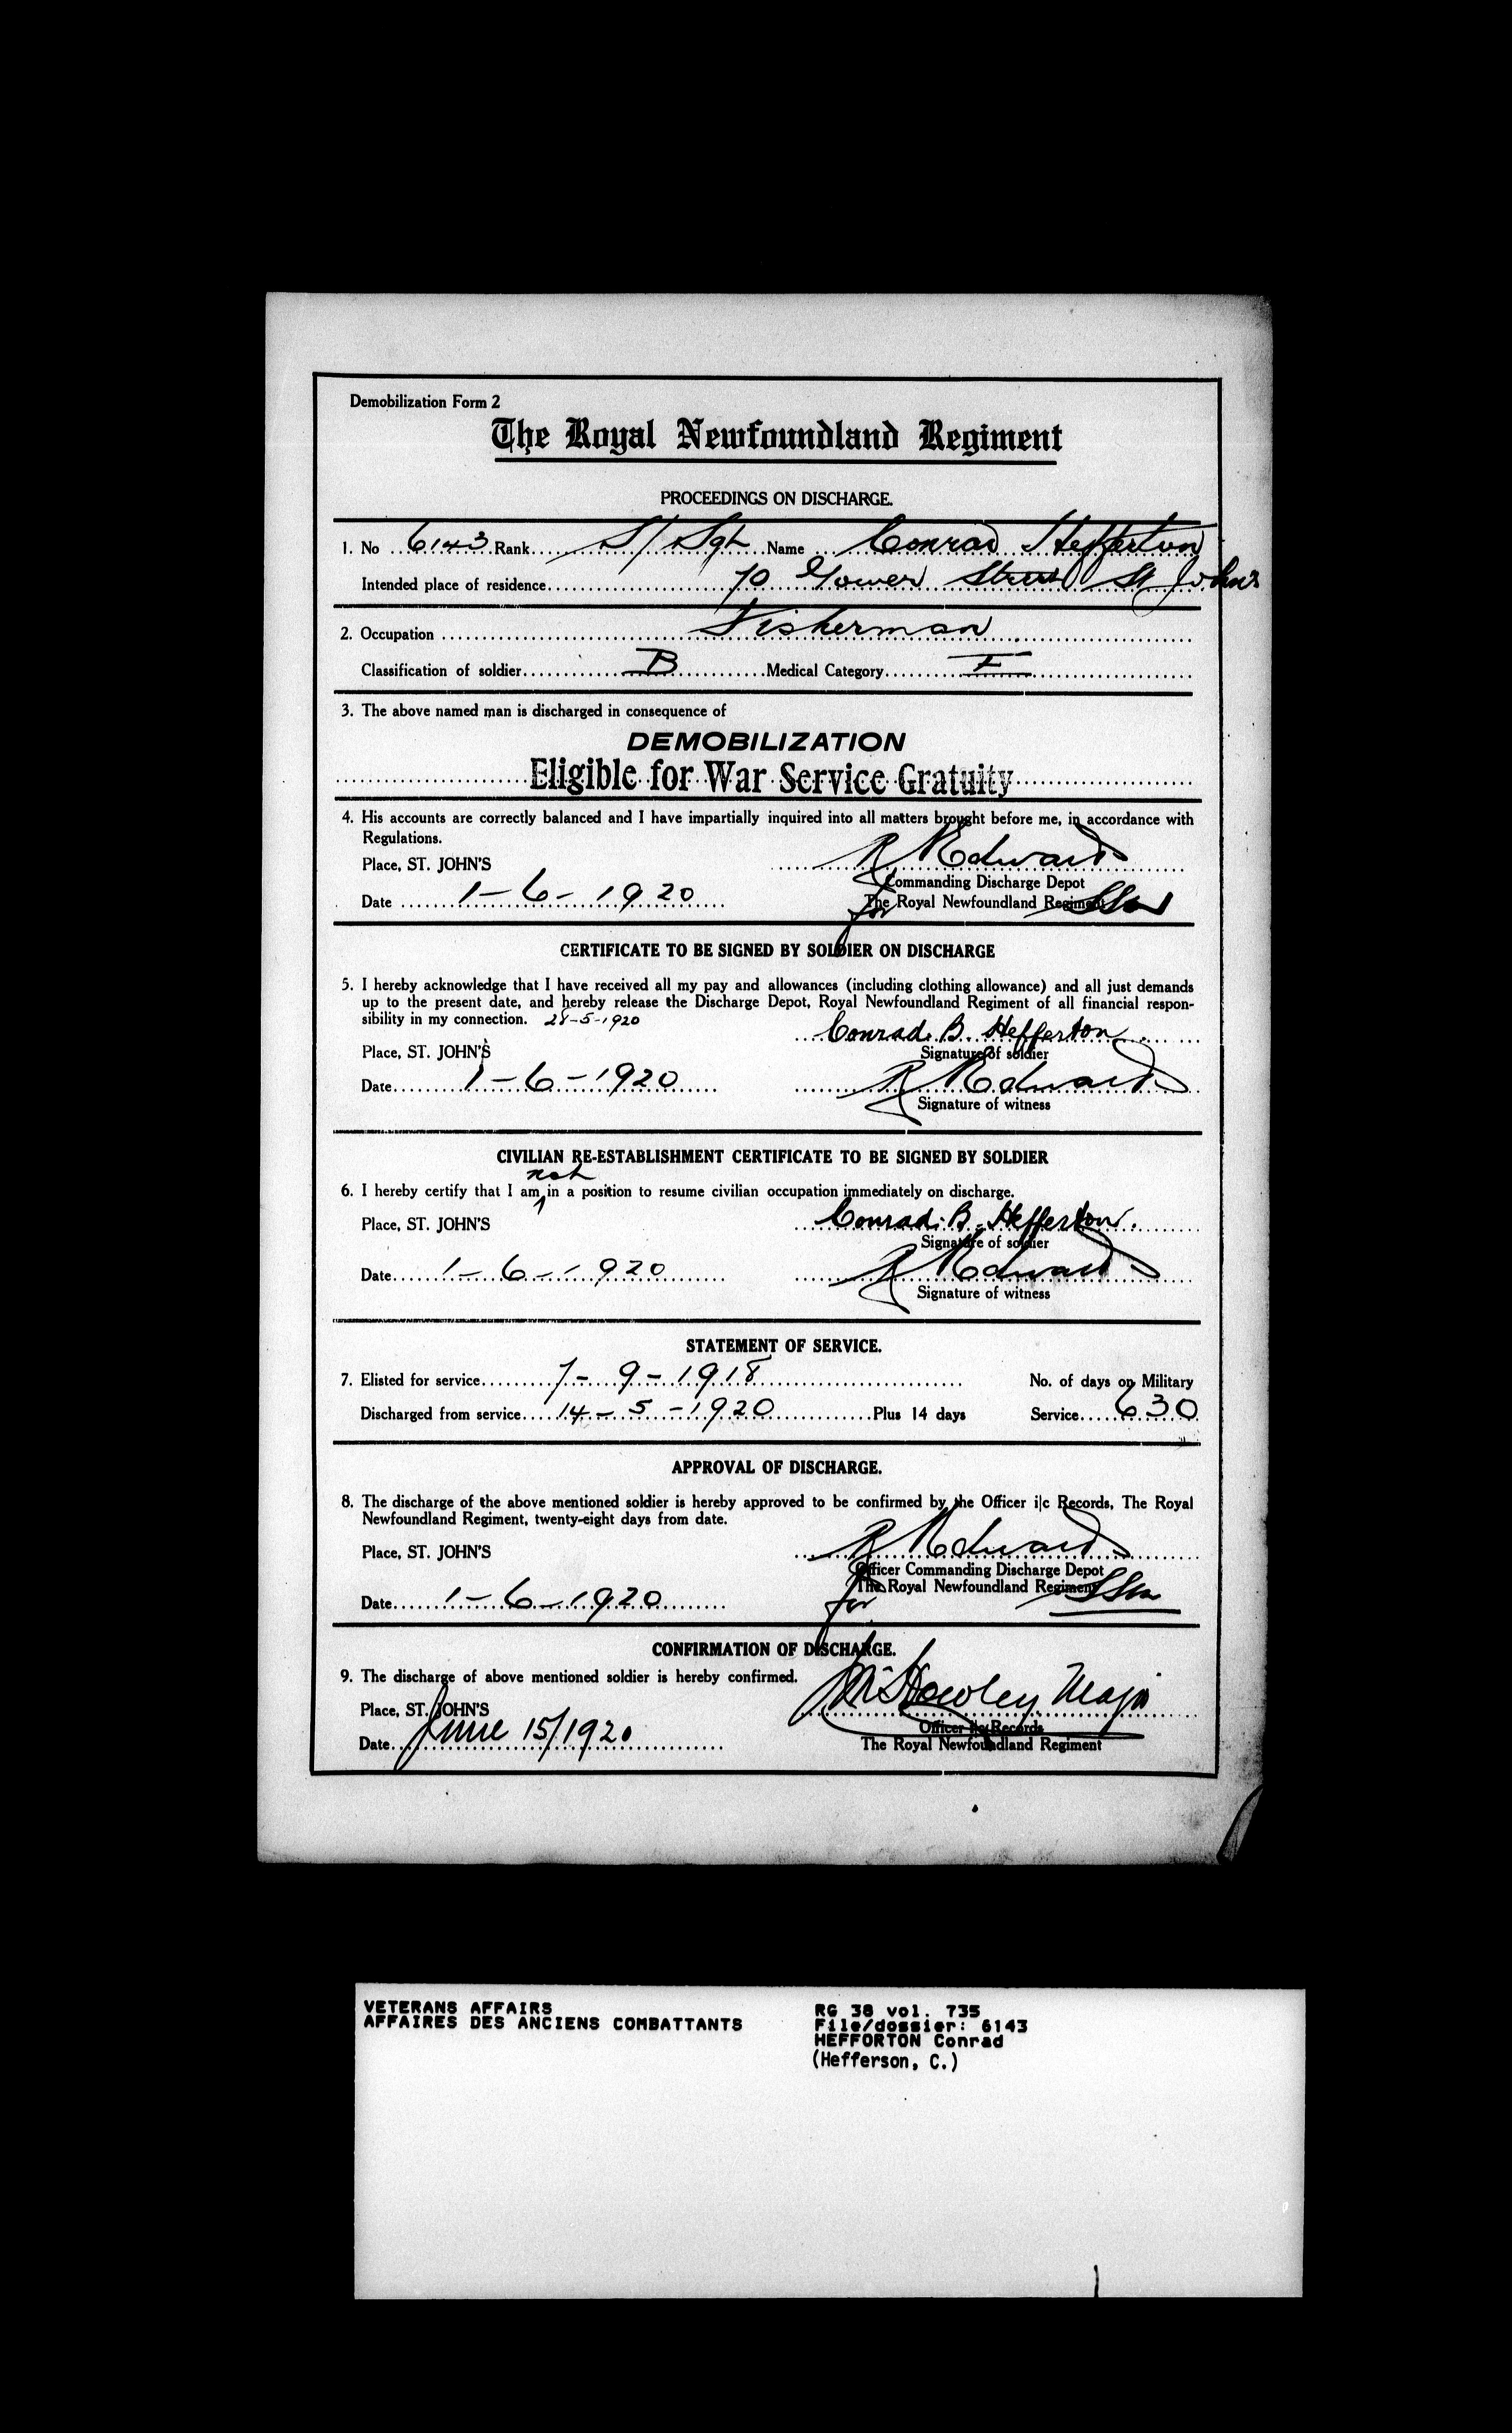 Demobilization Form 2
The Royal Newfoundland Regiment
PROCEEDINGS ON DISCHARGE.
1. No 6143 Rank S/Sgt Name Conrad Hefferton
Intended place of residence 70 Gower Street St John's
2. Occupation Fisherman
Classification of soldier B Medical Category E
3. The above named man is discharged in consequence of
DEMOBILIZATION
Eligible for War Service Gratuity
4. His accounts are correctly balanced and I have impartially inquired into all matters brought before me, in accordance with
Regulations.
Place, ST. JOHN'S
Commanding Discharge Depot
Date 1-6-1920 for The Royal Newfoundland Regiment
CERTIFICATE TO BE SIGNED BY SOLDIER ON DISCHARGE
5. I hereby acknowledge that I have received all my pay and allowances (including clothing allowance) and all just demands
up to the present date, and hereby release the Discharge Depot, Royal Newfoundland Regiment of all financial respon-
sibility in my connection. 28-5-1920
Conrad. B. Hefferton.
Place, ST. JOHN'S Signature of soldier
Date 1-6-1920
Signature of witness
CIVILIAN RE-ESTABLISHMENT CERTIFICATE TO BE SIGNED BY SOLDIER
6. I hereby certify that I am not in a position to resume civilian occupation immediately on discharge.
Place, ST. JOHN'S Conrad. B. Hefferton.
Signature of soldier
Date 1-6-1920
Signature of witness
STATEMENT OF SERVICE.
7. Elisted for service 7-9-1918 No. of days on Military
Discharged from service 14-5-1920 Plus 14 days Service 630
APPROVAL OF DISCHARGE.
8. The discharge of the above mentioned soldier is hereby approved to be confirmed by the Officer i|c Records, The Royal
Newfoundland Regiment, twenty-eight days from date.
Place, ST. JOHN'S
Officer Commanding Discharge Depot
for The Royal Newfoundland Regiment
Date 1-6-1920
CONFIRMATION OF DISCHARGE.
9. The discharge of above mentioned soldier is hereby confirmed.
Place, ST. JOHN'S Howley Major
Officer i|c Records
Date June 15/1920 The Royal Newfoundland Regiment
VETERANS AFFAIRS
AFFAIRES DES ANCIENS COMBATTANTS
RG 38 vol. 735
File/dossier: 6143
HEFFORTON Conrad
(Hefferson, C.)